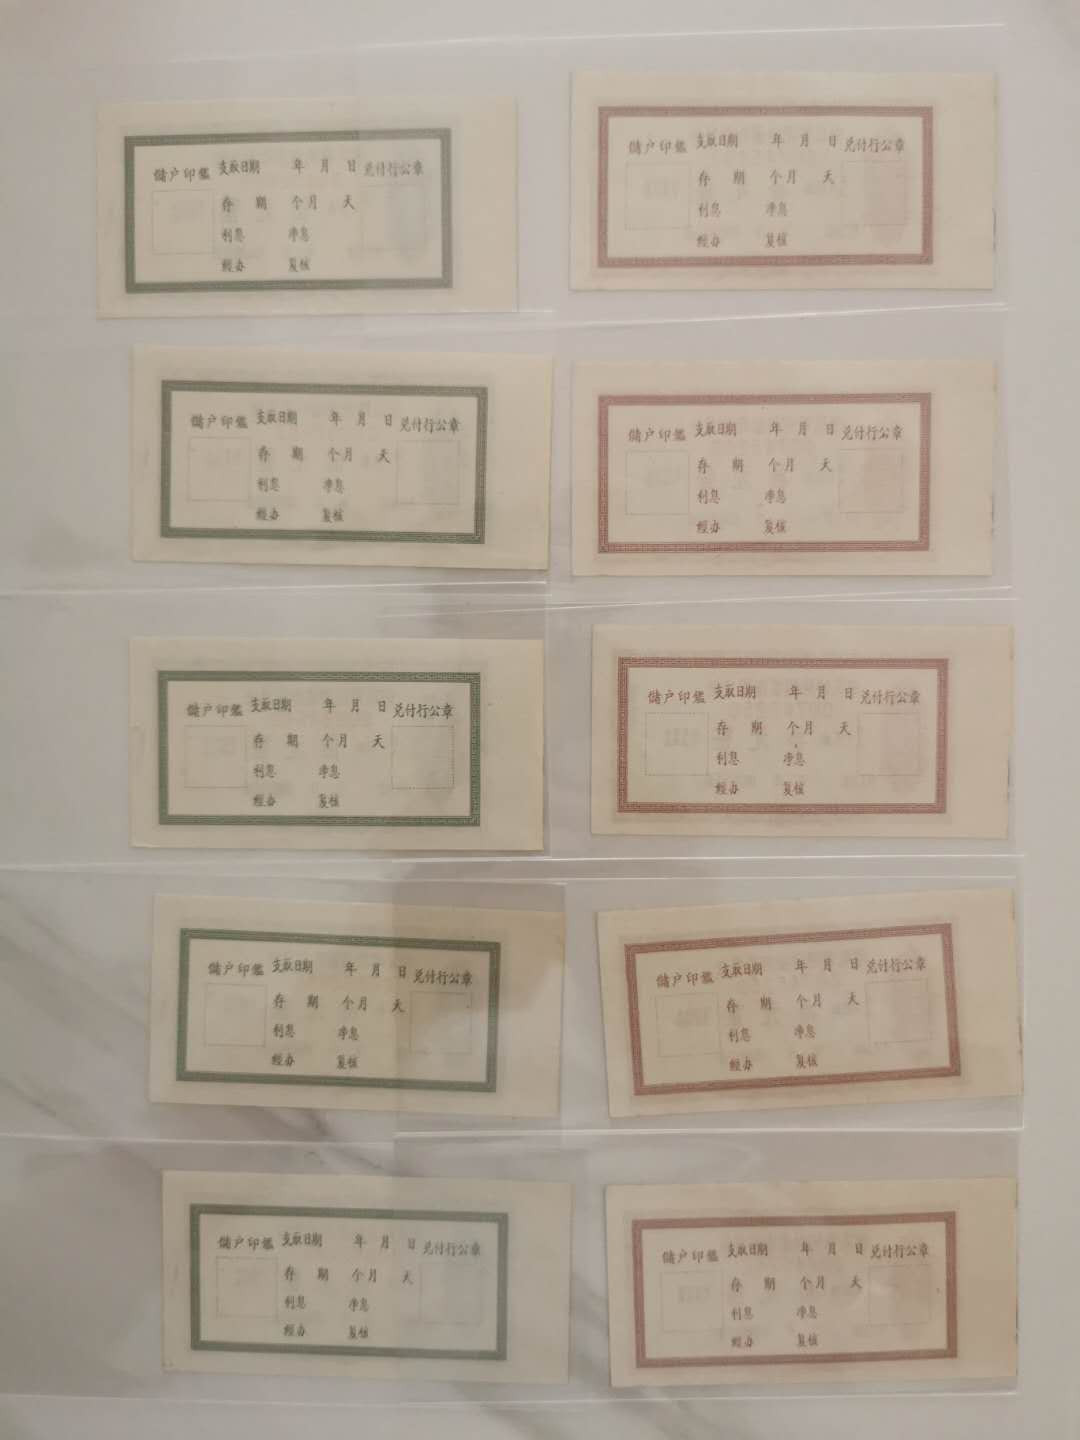 儲户印鑑 支取日期 年 月 日 兑付行公章
存 期 个月 天
利息 净息
经办 复核
儲户印鑑 支取日期 年 月 日 兑付行公章
存 期 个月 天
利息 净息
经办 复核
儲户印鑑 支取日期 年 月 日 兑付行公章
存 期 个月 天
利息 净息
经办 复核
儲户印鑑 支取日期 年 月 日 兑付行公章
存 期 个月 天
利息 净息
经办 复核
儲户印鑑 支取日期 年 月 日 兑付行公章
存 期 个月 天
利息 净息
经办 复核
儲户印鑑 支取日期 年 月 日 兑付行公章
存 期 个月 天
利息 净息
经办 复核
儲户印鑑 支取日期 年 月 日 兑付行公章
存 期 个月 天
利息 净息
经办 复核
儲户印鑑 支取日期 年 月 日 兑付行公章
存 期 个月 天
利息 净息
经办 复核
儲户印鑑 支取日期 年 月 日 兑付行公章
存 期 个月 天
利息 净息
经办 复核
儲户印鑑 支取日期 年 月 日 兑付行公章
存 期 个月 天
利息 净息
经办 复核